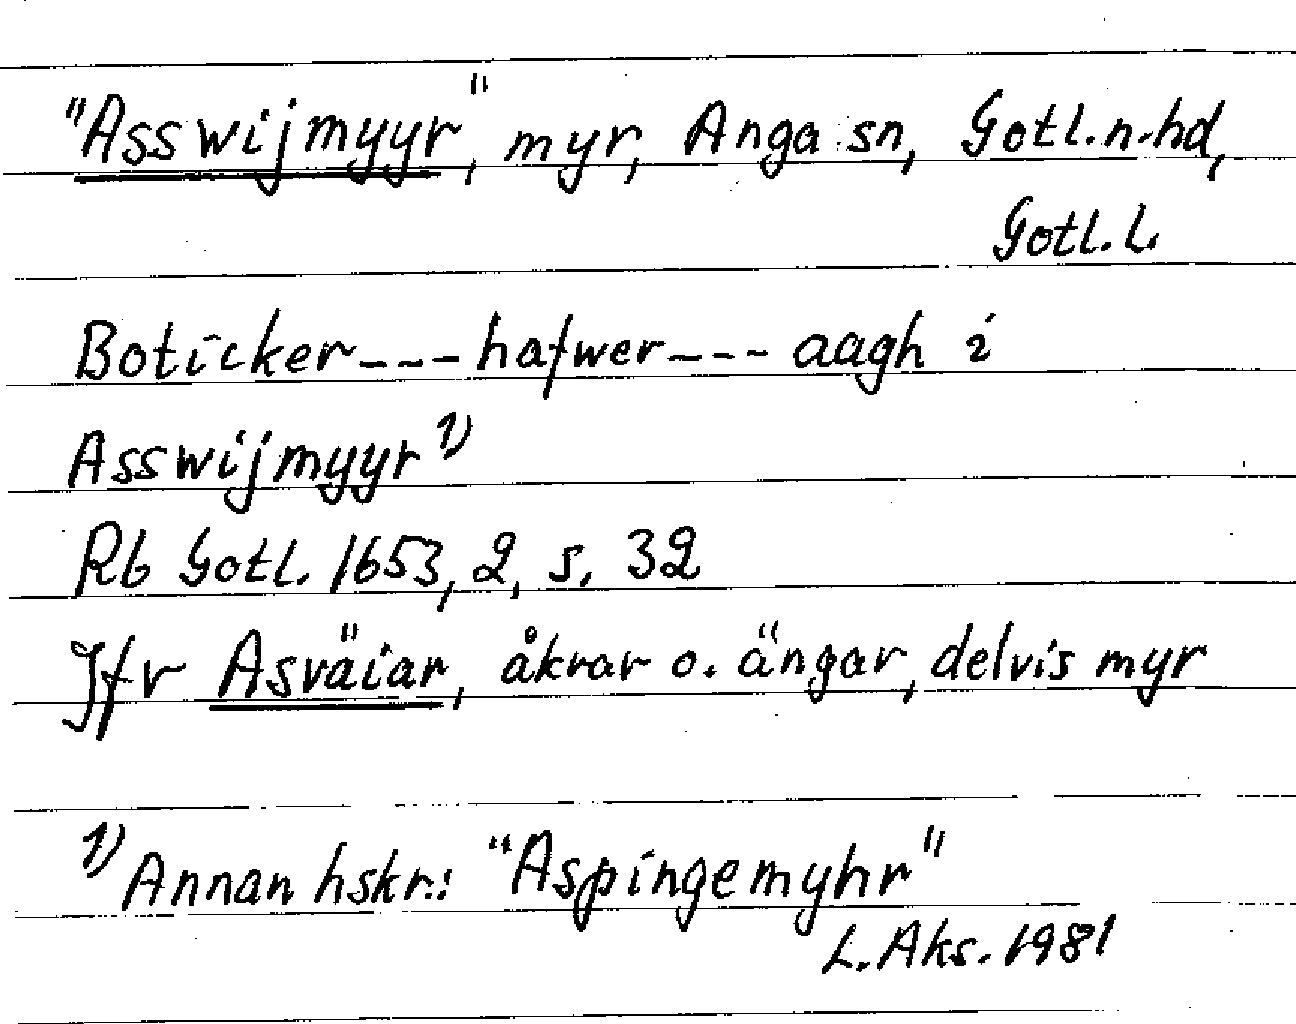 "Asswijmyyr", myr, Anga sn, Gotl.n.hd,
Gotl.L
Boticker---hafwer---aagh i
Asswijmyyr 1)
Rb Gotl. 1653, 2, s. 32
Jfr Asväiar, åkrar o. ängar, delvis myr
1) Annan hskr.: "Aspingemyhr"
L. Aks. 1981